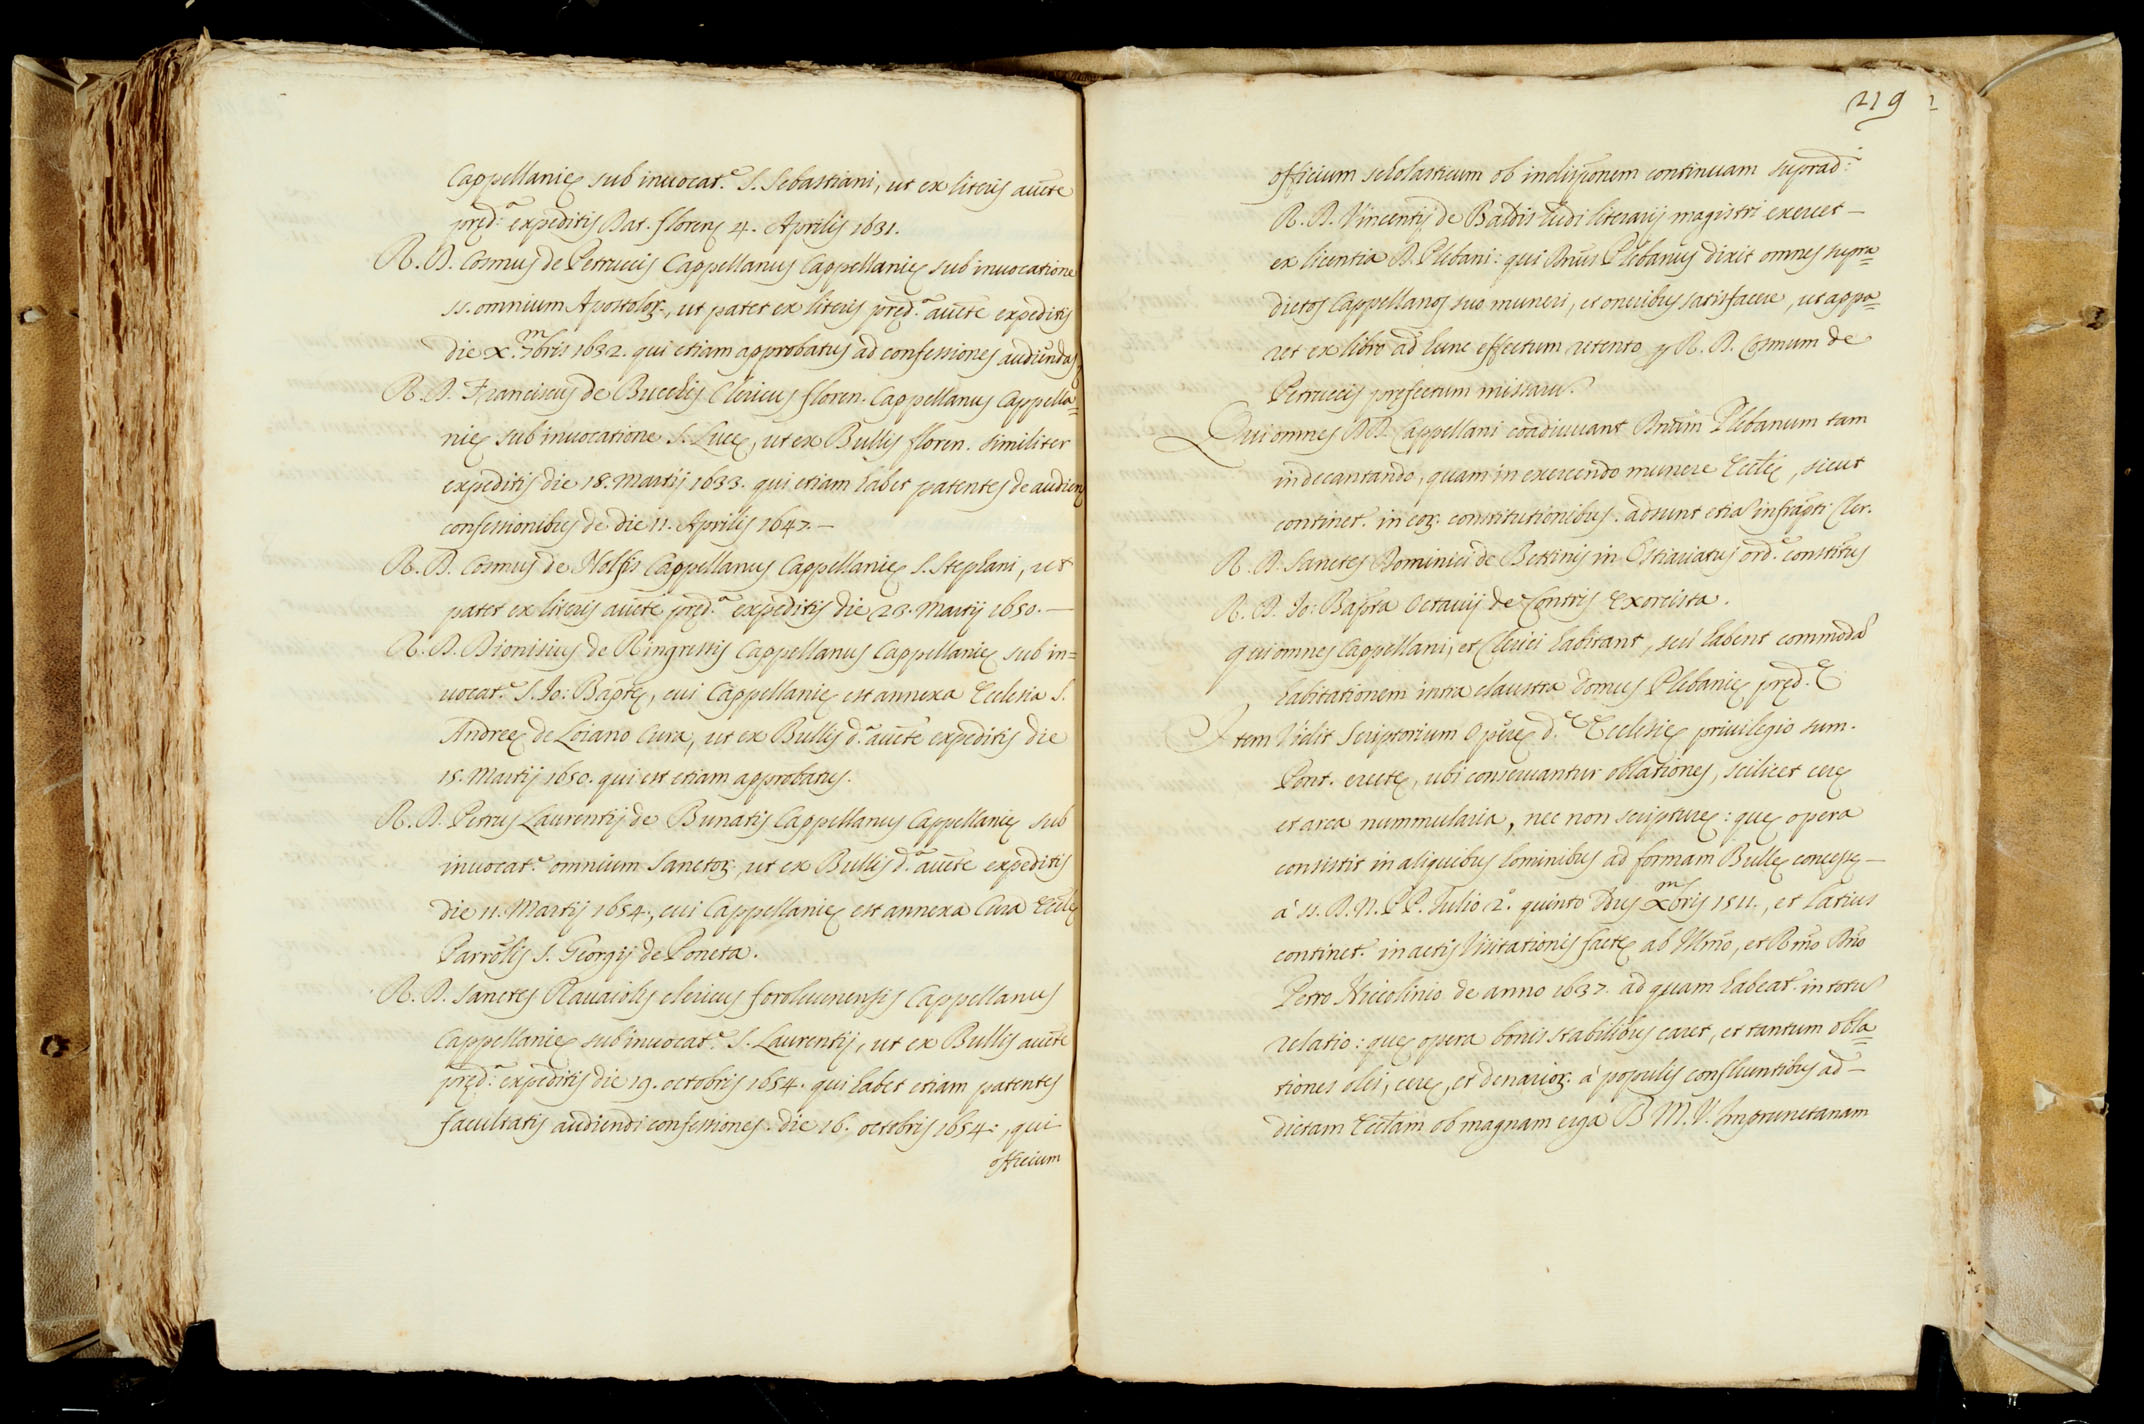 Cappellanię sub inuocat.e S. Sebastiani, ut ex literis aucte
pręd.a expeditis Dat. Floren. 4. Aprilis 1631.
R. D. Cosmus de Petruccis Cappellanus Cappellanię sub inuocatione
SS. omnium Apostolor., ut patet ex literis pręd.a aucte expeditis
die x. 7mbris 1632. qui etiam approbatus ad confessiones audiendas
R. D. Franciscus de Bucelis Clericus Floren. Cappellanus Cappella=
nię sub inuocatione S. Lucę, ut ex Bullis Floren. similiter
expeditis die 18. Martij 1633. qui etiam habet patentes de audien
confessionibus de die 11. Aprilis 1647.—
R. D. Cosmus de Cappellanus Cappellanię S. Stephani, ut
patet ex literis aucte pręd.a expeditis die 23. Martij 1650.—
R. D. Dionisius de Ringressis Cappellanus Cappellanię sub in=
uocat.e S. Jo: Baptę, cui Cappellanię est annexa Ecclesia S.
Andreę de Loiano Cura, ut ex Bullis d.a aucte expeditis die
15. Martij 1650. qui est etiam approbatus.
R. D. Petrus Laurentij de Bunatis Cappellanus Cappellanię sub
inuocat.e omnium Sanctor., ut ex Bullis d.a aucte expeditis
die 11. Martij 1654., cui Cappellanię est annexa Cura Eccle
Parrolis S. Georgij de Poneta.
R. D. Sanctes Rauaiolis clericus foroliuiensis Cappellanus
Cappellanię sub inuocat.e S. Laurentij, ut ex Bullis aucte
pręd.a expeditis die 19. octobris 1654. qui habet etiam patentes
facultatis audiendi confessiones. die 16. octobris 1654:, qui
officium
219
officium scholasticum ob indispōnem continuam suprad:i
R. D. Vincentij de Baldis ludi literarij magistri exercet—
ex licentia D. Plebani: qui Dnus Plebanus dixit omnes supra=
dictos Cappellanos suo muneri, et oneribus satisfacere, ut appa=
ret ex libro ad hunc effectum retento p R. D. Cosmum de
Petruccis pręfectum missaru.
Qui omnes DD. Cappellani coadiuuant Dnum Plebanum tam
in decantando, quam in exercendo munere Ecclę, sicut
continet. in eor. constitutionibus. adsunt etia infrapti Cler.
R. D. Sanctes Dominici de Bettinis in Ostiariatus ord.e constitus
R. D. Jo: Bapta Octauij de Contris Exorcista.
qui omnes Cappellani, et Clerici habitant, seu habent commoda
habitationem intra claustra domus Plebanię pręd.ę
Item Vidit Scriptorium Operę d.ę Ecclesię priuilegio sum.
Pont. erectę, ubi conseruantur oblationes, scilicet cerę
et arca nummularia, nec non scripturę: quę opera
consistit in aliquibus hominibus ad formam Bullę concessę—
à SS. D. N. PP. Iulio 2.o quinto Idus Xmbris 1511., et latius
continet. in actis Visitationis factę ab Illmo, et Rmo Dno
Petro Niccolinio de anno 1637. ad quam habeat. in totu
relatio: quę opera bonis stabilibus caret, et tantum obla=
tiones olei, cerę, et denarior. à populis confluentibus ad—
dictam Ecclam ob magnam erga B. M. V. Imprunetanam